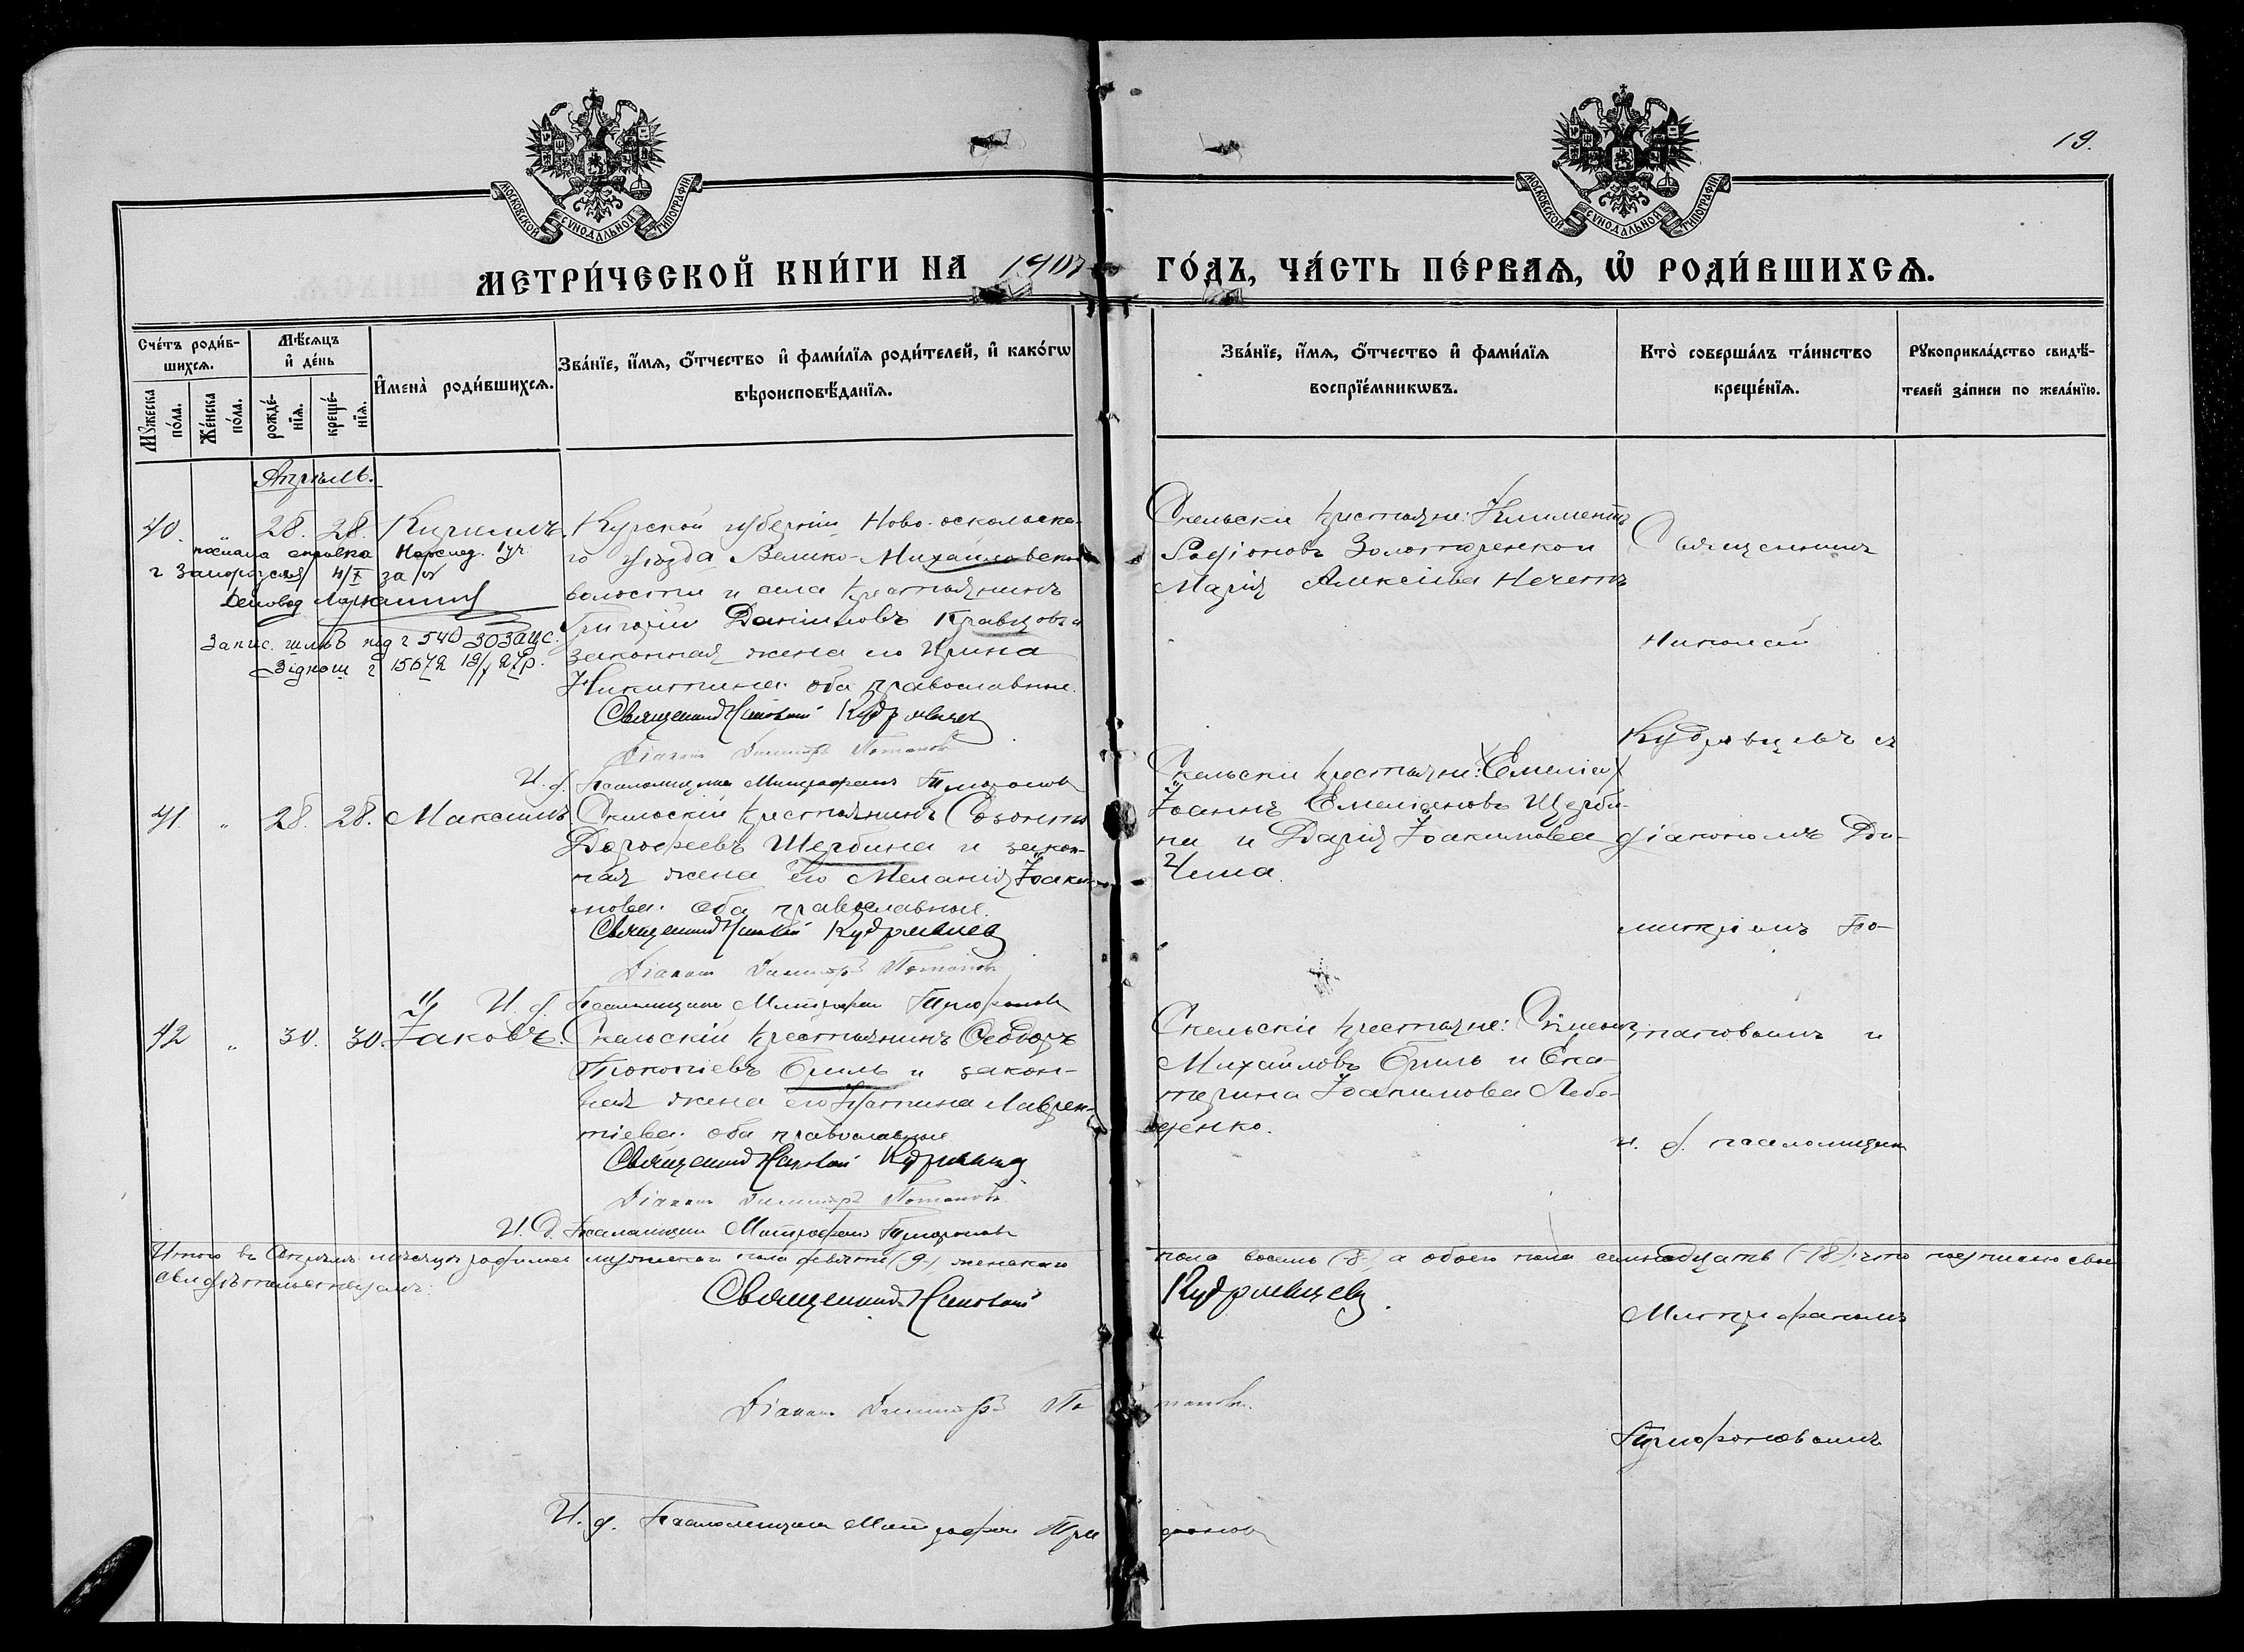 МОСКОВСКОЙ СѴНОДАЛЬНОЙ ТИПОГРАФІИ
МОСКОВСКОЙ СѴНОДАЛЬНОЙ ТИПОГРАФІИ
19.
МЕТРИ́ЧЕСКОЙ КНИ́ГИ НА 1907 ГО́ДЪ, ЧА́СТЬ ПЕ́РВАѦ, Ѿ РОДИ́ВШИХСѦ.
Сче́тъ роди́в-
шихся.
Мꙋ́жеска по́ла.
Же́нска по́ла.
Мѣ́сяцъ и҆ де́нь
рожде́-
нїя.
креще́-
нїя.
И҆мена̀ роди́вшихся.
Зва́нїе, и҆́мя, ѻ҆́тчество и҆ фами́лїя роди́телей, и҆ како́гѡ
вѣроисповѣ́данїя.
Зва́нїе, и҆́мя, ѻ҆́тчество и҆ фами́лїя
воспрїе́мникѡвъ.
Кто̀ соверша́лъ та́инство
креще́нїя.
Рꙋкоприкла́дство свидѣ́-
телей за́писи по жела́нїю.
Апрѣль.
40. " 28. 28. Кириллъ.
Курской губерніи Ново-оскольска-
го уѣзда Велико-Михайловской
волости и села крестьянинъ
Григорій Даніиловъ Кравцовъ и
законная жена его Ирина
Никитина оба православные.
Священникъ Николай Кудрявцевъ
Діаконъ Димитрій Потаповъ
И. д. псаломщика Митрофанъ Трифоновъ
послана справка
г Запорожья 4/X за №
Діловод
Скельскіе крестьяне: Климентъ
Родіоновъ Золотаренко и
Марія Алексіева Нечетъ
Священникъ
Николай
Кудрявцевъ съ
діакономъ Ди-
митріемъ По-
таповымъ и
и. д. псаломщика
Митрофаномъ
Трифоновымъ
41. " 28. 28. Максимъ
Скельскій крестьянинъ Созонтъ
Дорофеевъ Щербина и закон-
ная жена его Меланія Іоаки-
мова оба православные.
Священникъ Николай Кудрявцевъ
Діаконъ Димитрій Потаповъ
И. д. псаломщика Митрофанъ Трифоновъ
Скельскіе крестьяне:
Іоаннъ Емеліановъ Щерби-
на и Дарія Іоакимова
42 " 30. 30. Іаковъ.
Скельскій крестьянинъ Ѳеодоръ
Прокопіевъ Бриль и закон-
ная жена его Лаврен-
тіева оба православные
Священникъ Николай Кудрявцевъ
Діаконъ Димитрій Потаповъ
И. д. псаломщика Митрофанъ Трифоновъ
Скельскіе крестьяне: Симеонъ
Михайловъ Бриль и Ека-
терина Іоакимова Лебе-
денко.
Итого въ Апрѣлѣ мѣсяцѣ родилось мужеска пола девять (9), женскаго пола восемь (8) а обоего пола (18) что подписью своею
свидѣтельствуемъ:
Священникъ Николай Кудрявцевъ.
Діаконъ Димитрій Потаповъ.
И. д. псаломщика Митрофанъ Трифоновъ